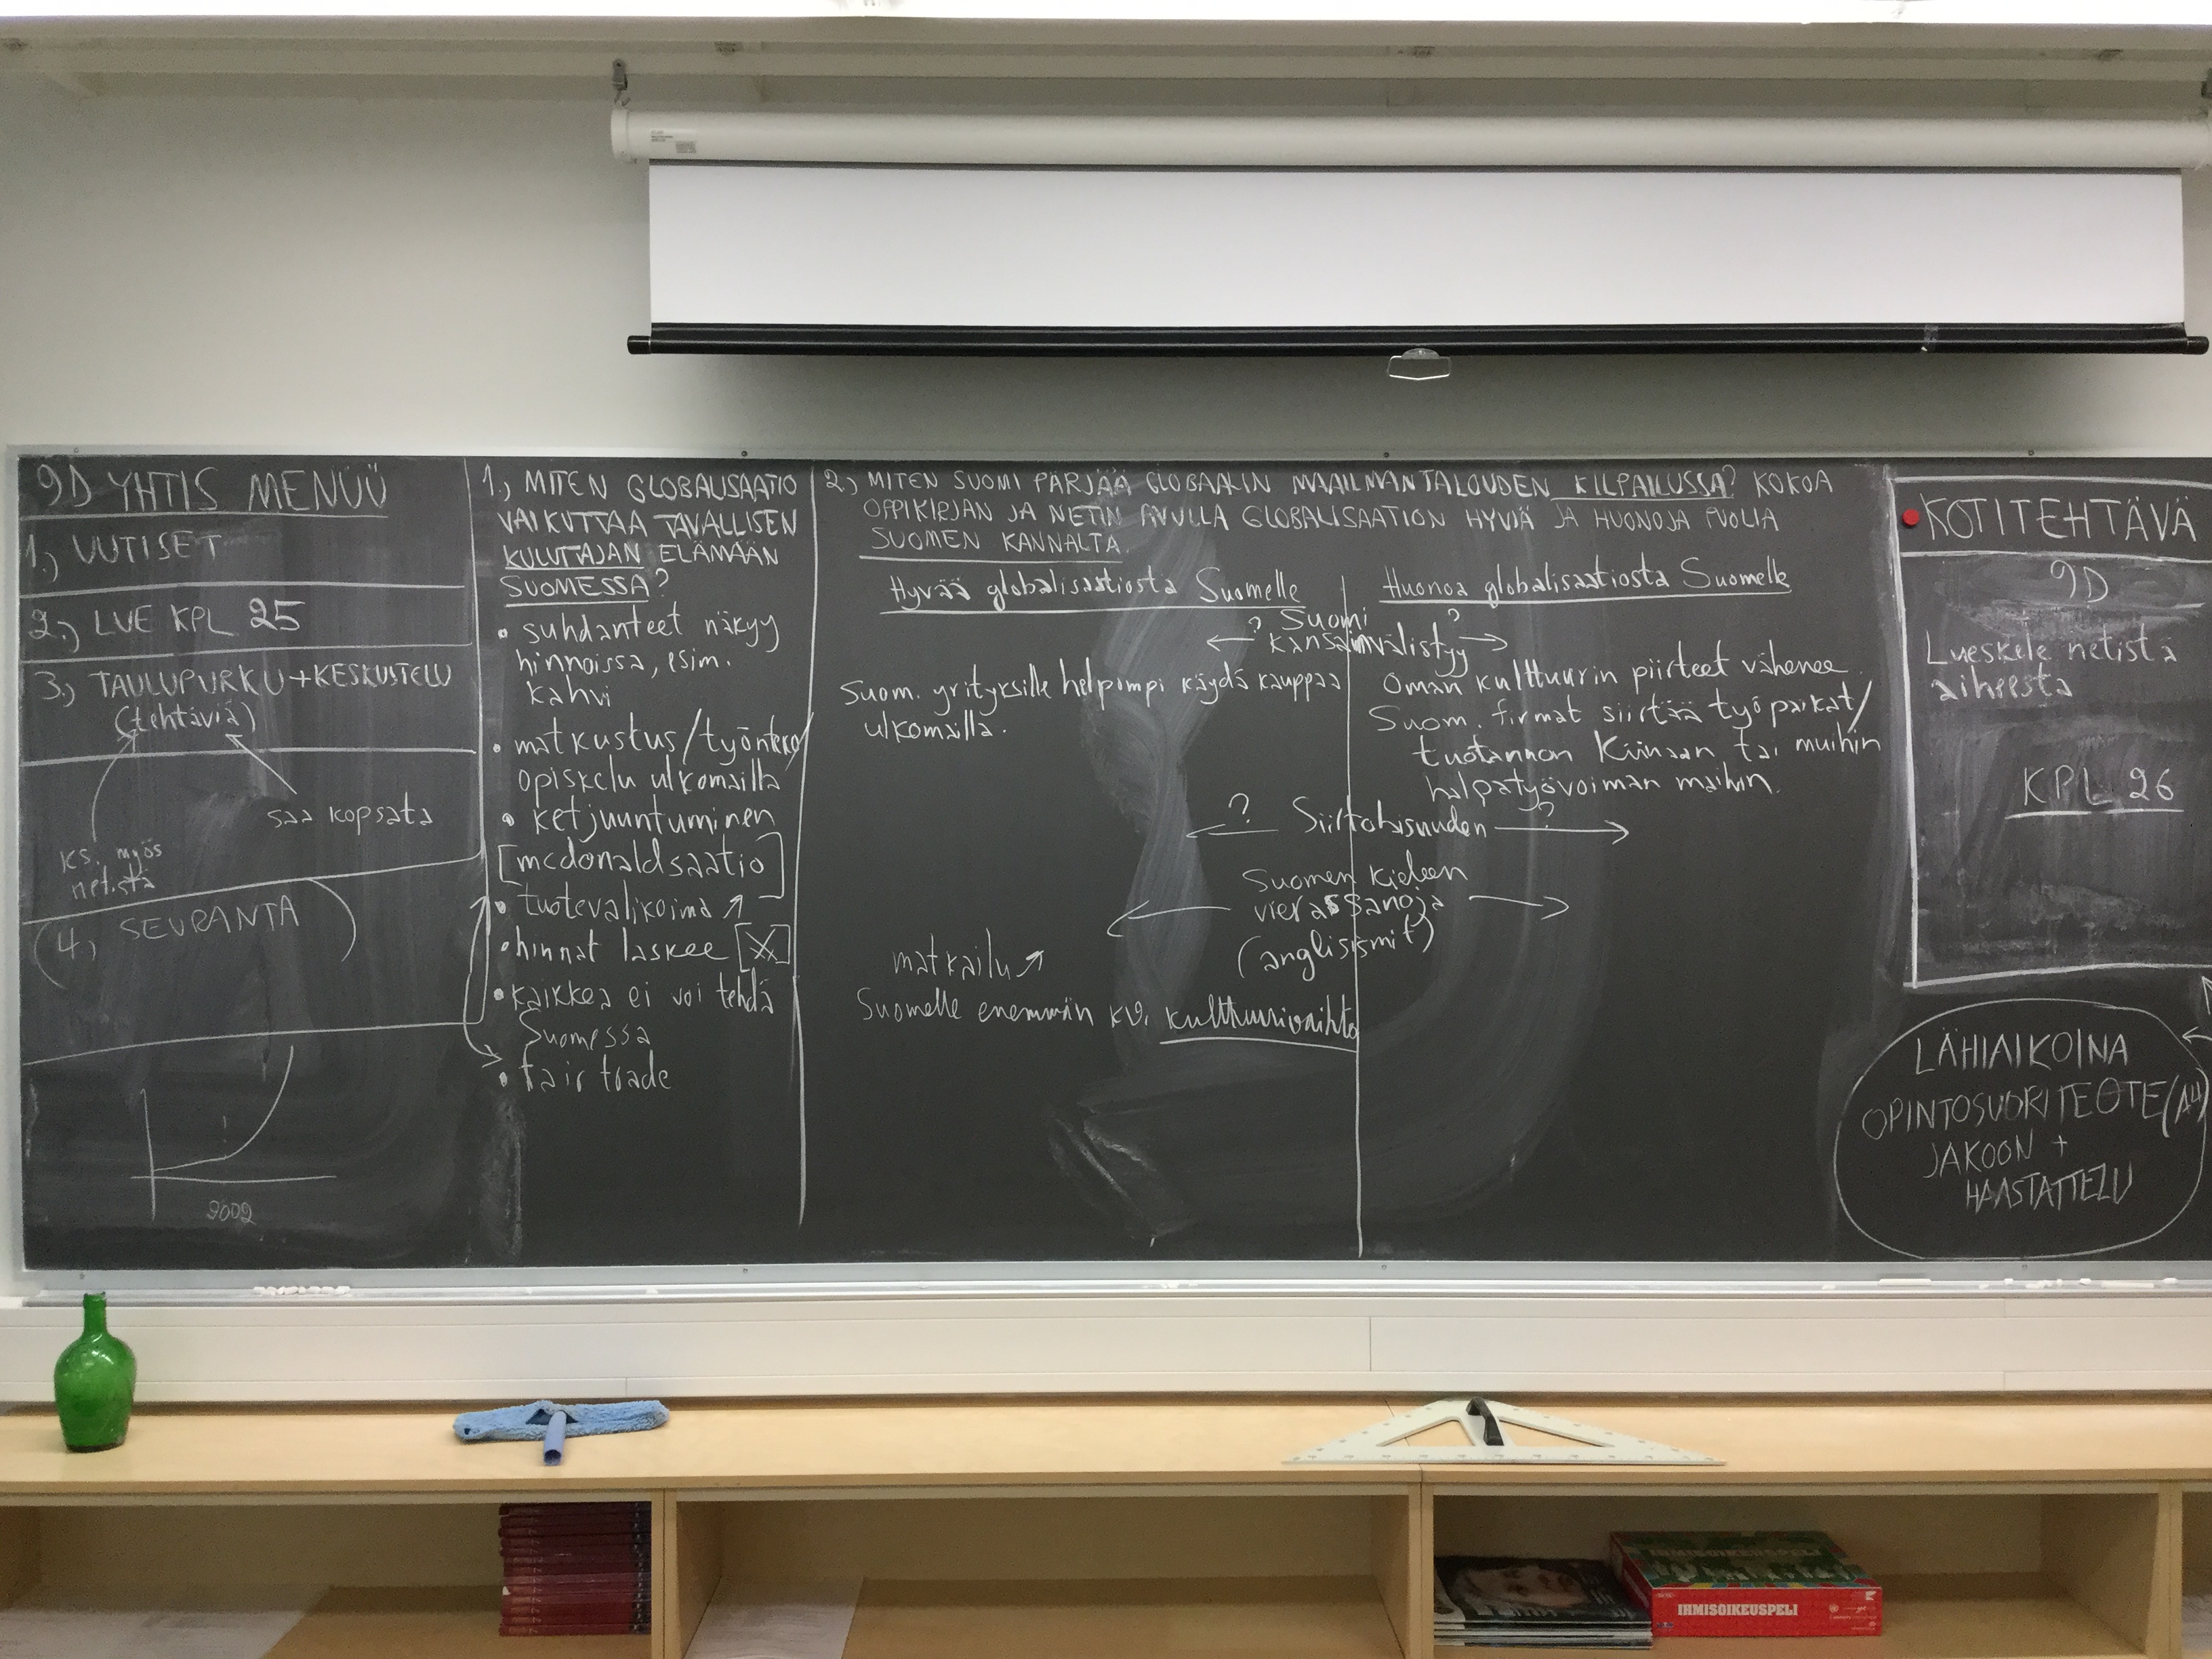 9D YHTIS MENUÜ
1.) UUTISET
2.) LUE KPL 25
3.) TAULUPURKU + KESKUSTELU
(tehtäviä)
saa kopsata
ks. myös
netistä
(4.) SEURANTA)
2002
1.) MITEN GLOBALISAATIO
VAIKUTTAA TAVALLISEN
KULUTAJAN ELÄMÄÄN
SUOMESSA?
• suhdanteet näkyy
hinnoissa, esim.
kahvi
• matkustus/työnteko/
opiskelu ulkomailla
• ketjuuntuminen
[mcdonaldsaatio]
• tuotevalikoima ↗
• hinnat laskee
• kaikkea ei voi tehdä
Suomessa
• fair trade
2.) MITEN SUOMI PÄRJÄÄ GLOBAALIN MAAILMANTALOUDEN KILPAILUSSA? KOKOA
OPPIKIRJAN JA NETIN AVULLA GLOBALISAATION HYVIÄ JA HUONOJA PUOLIA
SUOMEN KANNALTA.
Hyvää globalisaatiosta Suomelle
Huonoa globalisaatiosta Suomelle
? Suomi ?
← kansainvälistyy →
Suom. yrityksille helpompi käydä kauppaa
ulkomailla.
Oman kulttuurin piirteet vähenee
Suom. firmat siirtää työpaikat/
tuotannon Kiinaan tai muihin
halpatyövoiman maihin.
← ? ? →
Suomen kieleen
← vierassanoja →
(anglisismit)
matkailu ↗
Suomelle enemmän kv. kulttuurivaihto
KOTITEHTÄVÄ
9D
Lueskele netistä
aiheesta
KPL 26
LÄHIAIKOINA
OPINTOSUORITEOTE (A4)
JAKOON +
HAASTATTELU
IHMISOIKEUSPELI
IHMISOIKEUSPELI